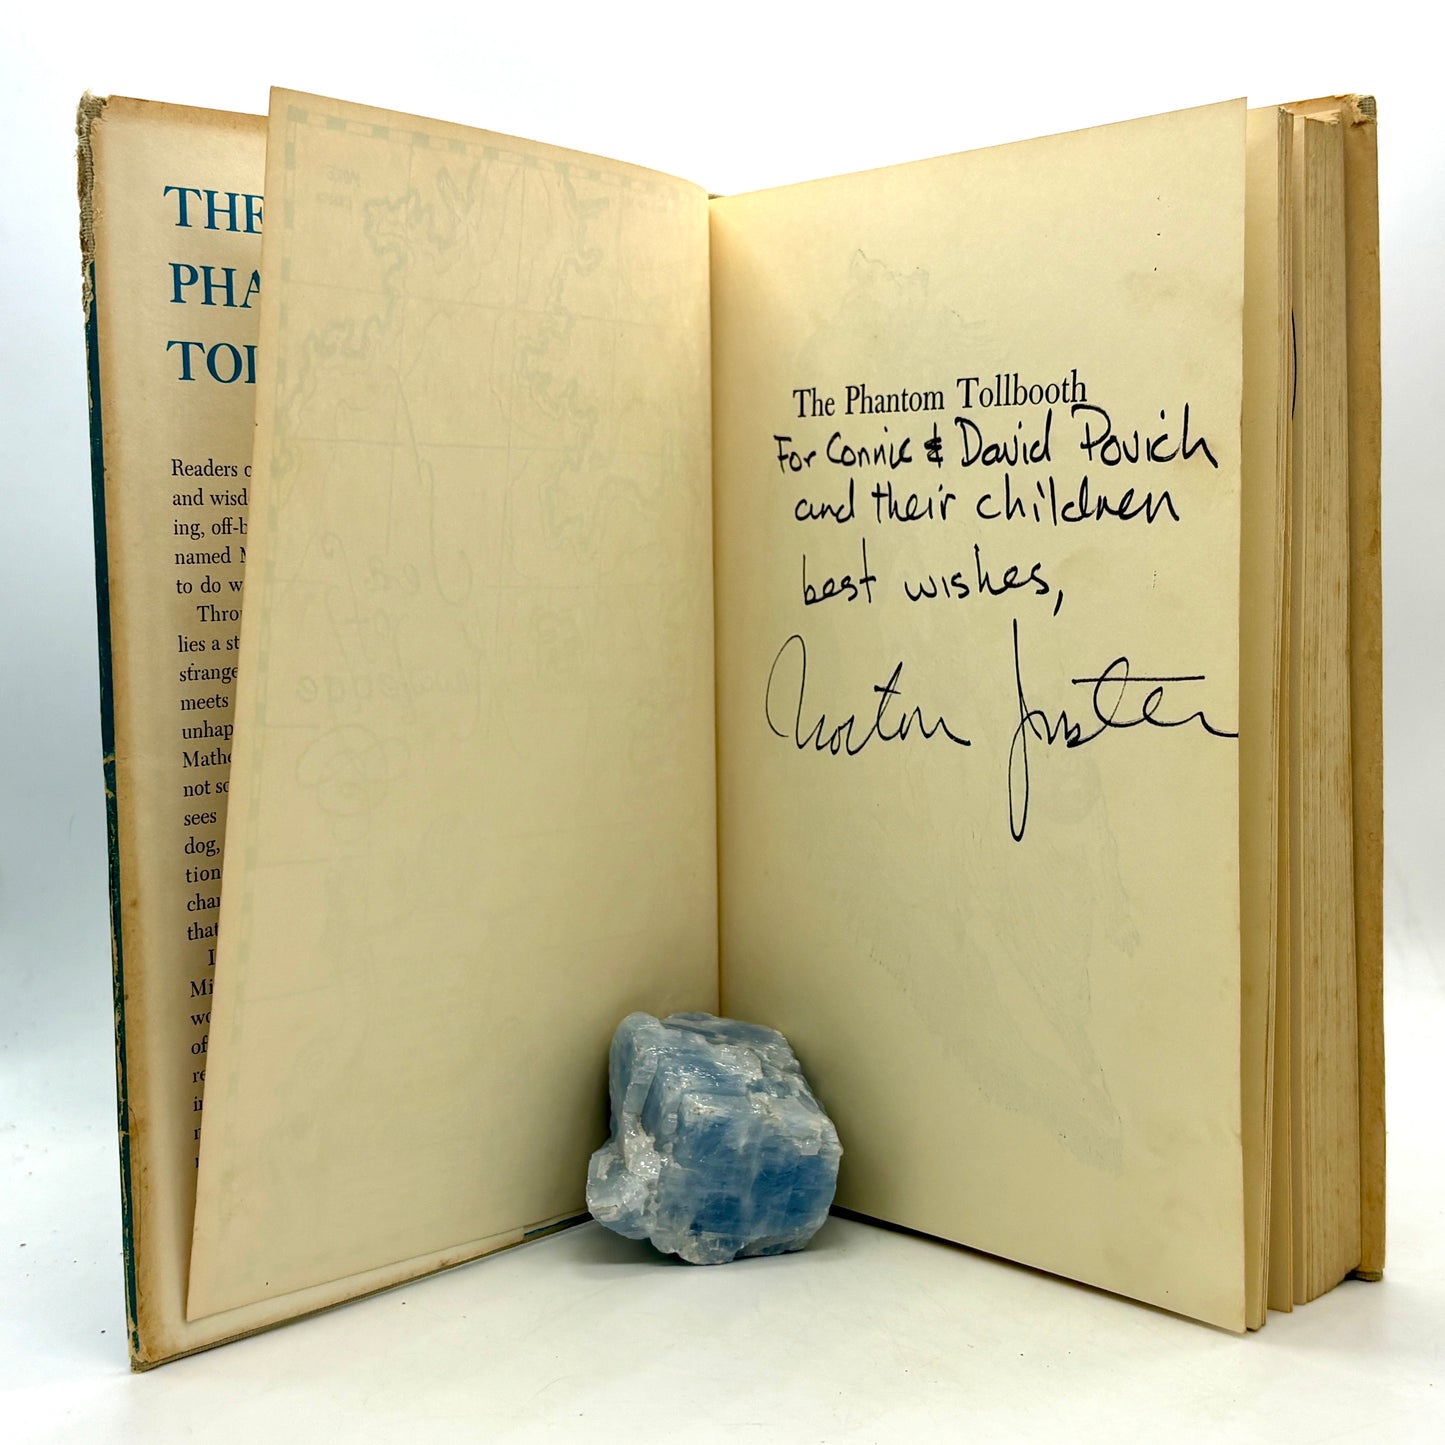 THE
PHA
TOL
Readers o
and wisd
ing, off-b
named M
to do w
Throu
lies a st
strange
meets
unhap
Mathe
not so
sees
dog,
tion
char
that
I
Mi
wo
of
re
The Phantom Tollbooth
For Connie & David Povich
and their children
best wishes,
Norton Juster